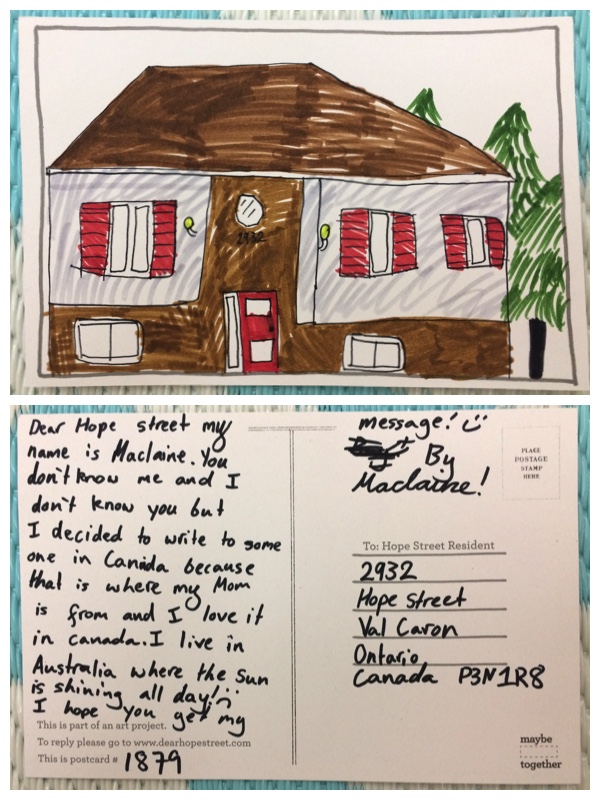 2932
Dear Hope street my
name is Maclaine. You
don't know me and I
don't know you but
I decided to write to some
one in Canada because
that is where my Mom
is from and I love it
in canada. I live in
Australia where the sun
is shining all day!
I hope you get my
This is part of an art project.
To reply please go to www.dearhopestreet.com
This is postcard # 1879
message!
By
Maclaine!
PLACE
POSTAGE
STAMP
HERE
To: Hope Street Resident
2932
Hope Street
Val Caron
Ontario
Canada P3N1R8
maybe
together